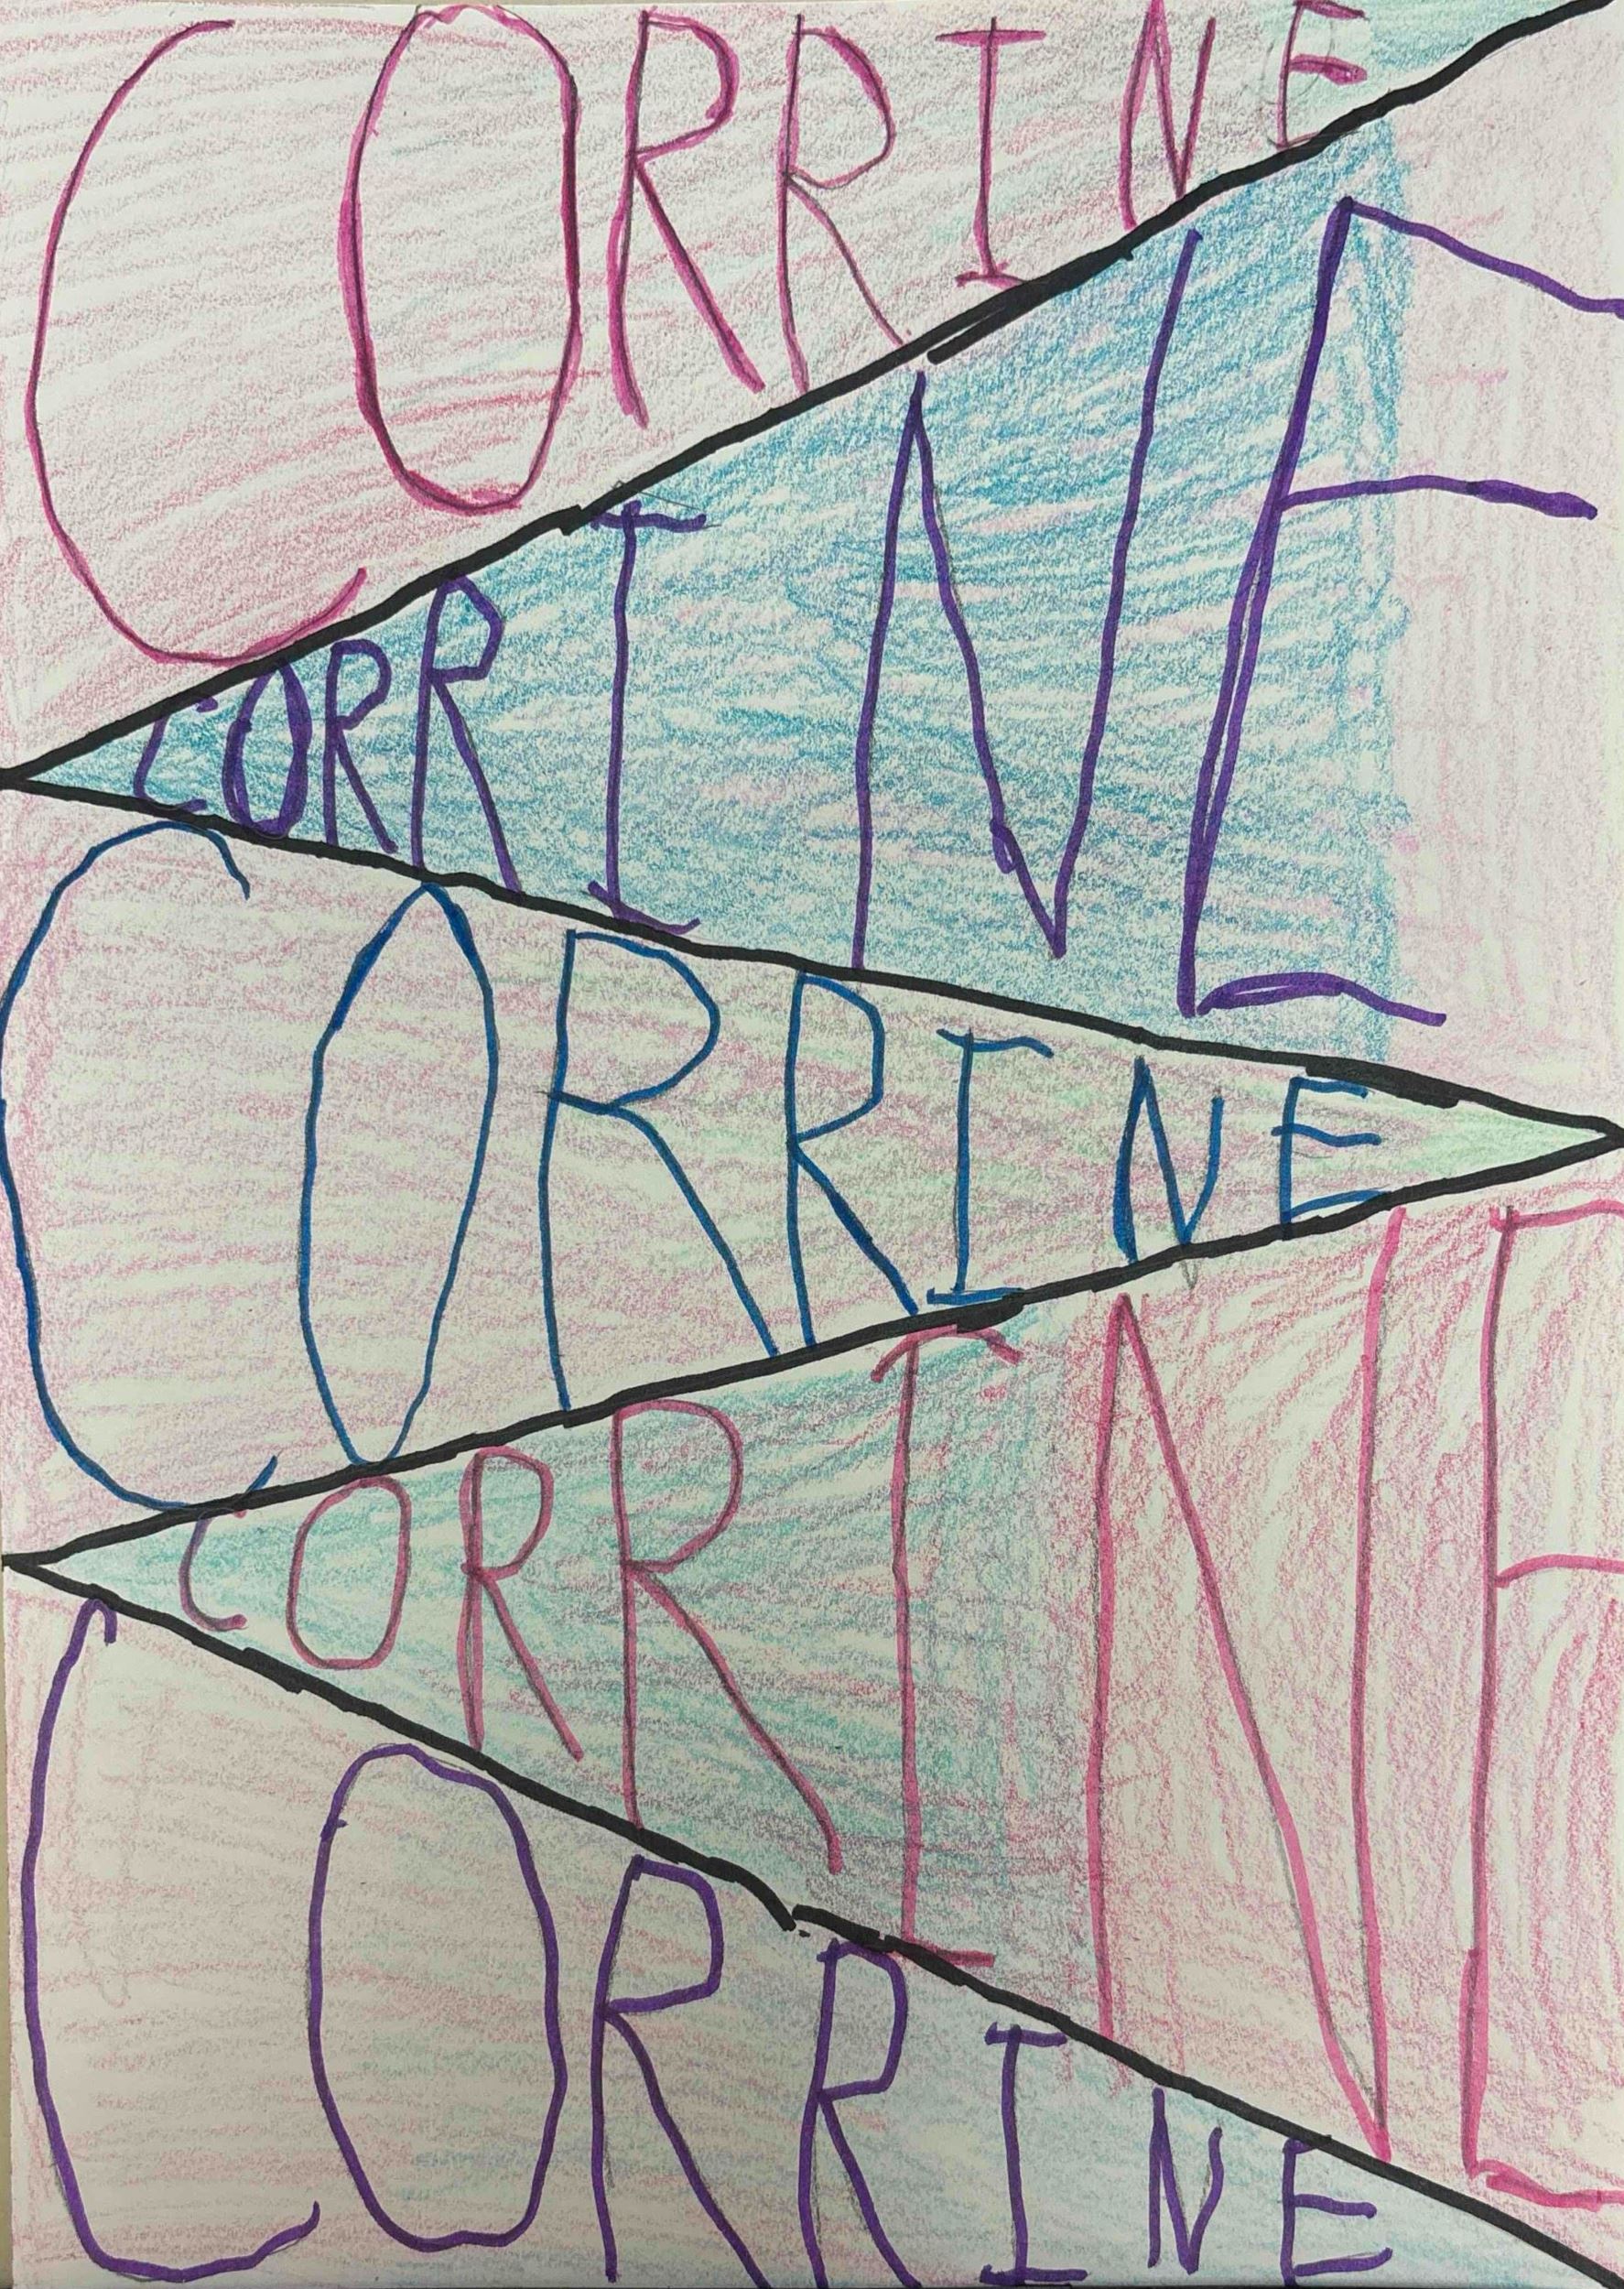 CORRINE
CORRINE
CORRINE
CORRINE
CORRINE